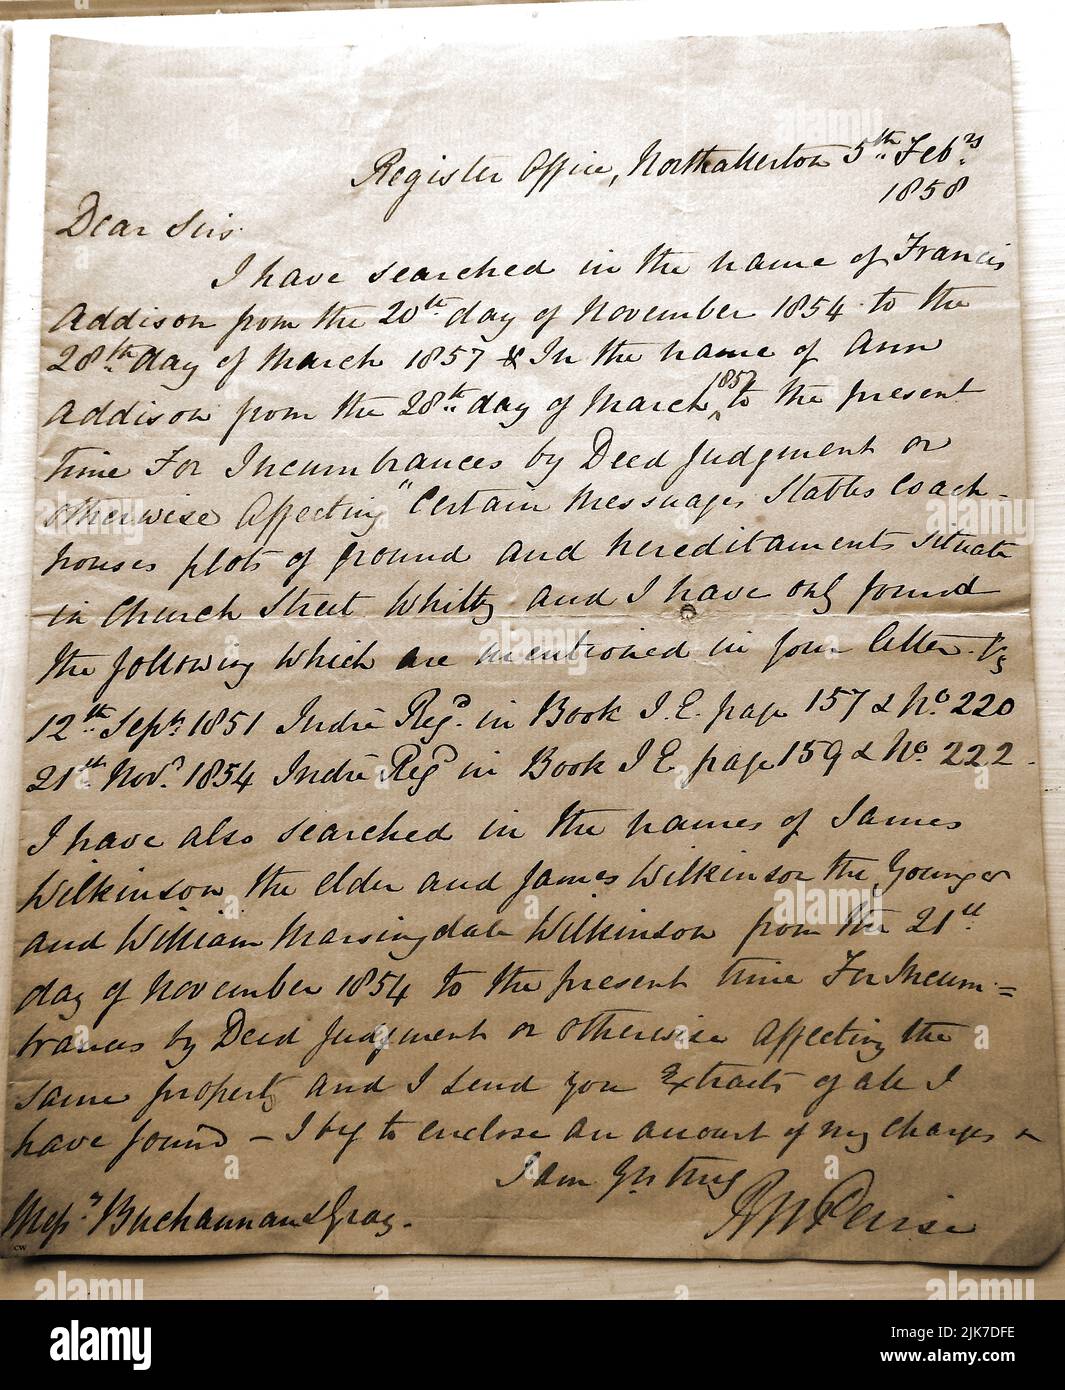 Register Office, Northallerton 5th Feby
1858
Dear Sirs
I have searched in the name of Francis
Addison from the 20th day of November 1854 to the
28th day of March 1857 & In the name of Ann
Addison from the 28th day of March 1857 to the present
time For Incumbrances by Deed Judgment or
otherwise Affecting "Certain Messuages Stables Coach-
houses plots of ground and hereditaments situate
in Church Street Whitby and I have only found
the following which are mentioned in your letter Vz
12th Sept 1851 Indre Regd in Book I.E. page 157 & No 220
21st Novr 1854 Indre Regd in Book I E page 159 & No 222
I have also searched in the names of James
Wilkinson the elder and James Wilkinson the Younger
and William Marsingdale Wilkinson from the 21st
day of November 1854 to the present time For Incum=
brances by Deed Judgment or otherwise affecting the
same property and I send you Extracts of all I
have found – I beg to enclose an amount of my charges &
I am Yrs truly
Messrs Buchannan & Gray.
CW
alamy
alamy
Image ID: 2JK7DFE
www.alamy.com